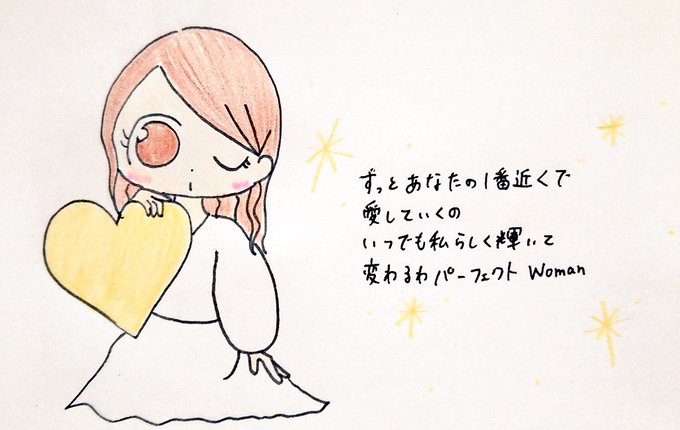 ずっとあなたの1番近くで
愛していくの
いつでも私らしく輝いて
変わるわパーフェクト Woman